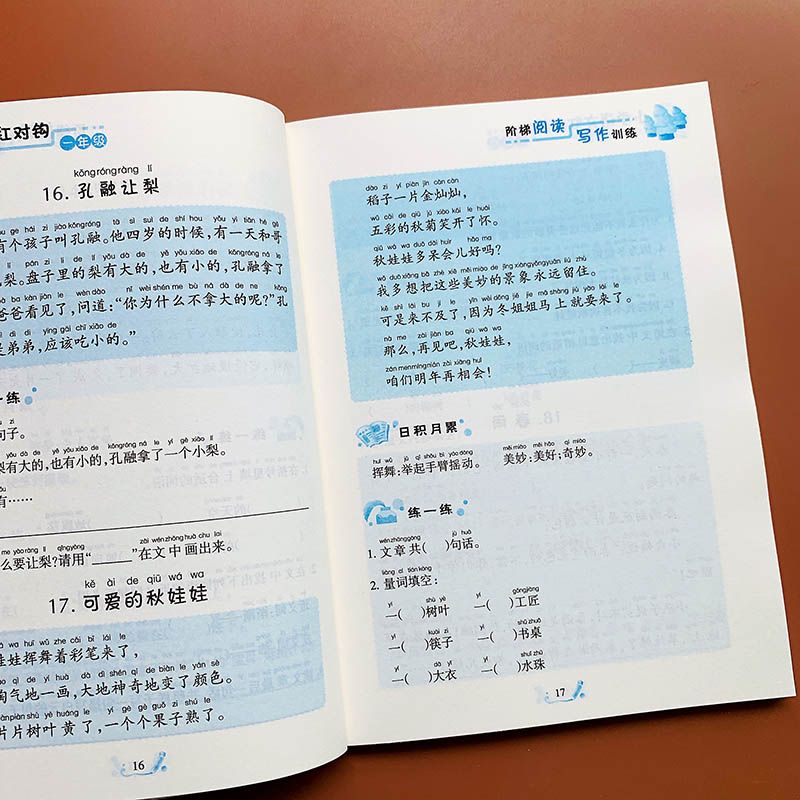 红对钩
一年级
kǒng róng ràng lí
16. 孔融让梨
有个孩子叫孔融。他四岁的时候,有一天和哥
梨。盘子里的梨有大的,也有小的,孔融拿了
爸爸看见了,问道:“你为什么不拿大的呢?”孔
是弟弟,应该吃小的。”
一练
句子。
梨有大的,也有小的,孔融拿了一个小梨。
有……
么要让梨?请用“______”在文中画出来。
kě ài de qiū wá wa
17. 可爱的秋娃娃
娃娃挥舞着彩笔来了,
淘气地一画,大地神奇地变了颜色。
片片树叶黄了,一个个果子熟了。
16
阶梯阅读
写作训练
dào zi yí piàn jīn càn càn
稻子一片金灿灿,
wǔ cǎi de qiū jú xiào kāi le huái
五彩的秋菊笑开了怀。
qiū wá wa duō dāi huìr hǎo ma
秋娃娃多呆会儿好吗?
wǒ duō xiǎng bǎ zhè xiē měi miào de jǐng xiàng yǒng yuǎn liú zhù
我多想把这些美妙的景象永远留住。
kě shì lái bu jí le yīn wèi dōng jiě jie mǎ shàng jiù yào lái le
可是来不及了,因为冬姐姐马上就要来了。
nà me zài jiàn ba qiū wá wa
那么,再见吧,秋娃娃,
zán men míng nián zài xiāng huì
咱们明年再相会!
日积月累
huī wǔ jǔ qǐ shǒu bì yáo dòng měi miào měi hǎo qí miào
挥舞:举起手臂摇动。 美妙:美好;奇妙。
练一练
wén zhāng gòng jù huà
1. 文章共( )句话。
liàng cí tián kòng
2. 量词填空:
yí shù yè yí gōng jiàng
一( )树叶 一( )工匠
yì kuài zi yì shū zhuō
一( )筷子 一( )书桌
yí dà yī yì shuǐ zhū
一( )大衣 一( )水珠
17